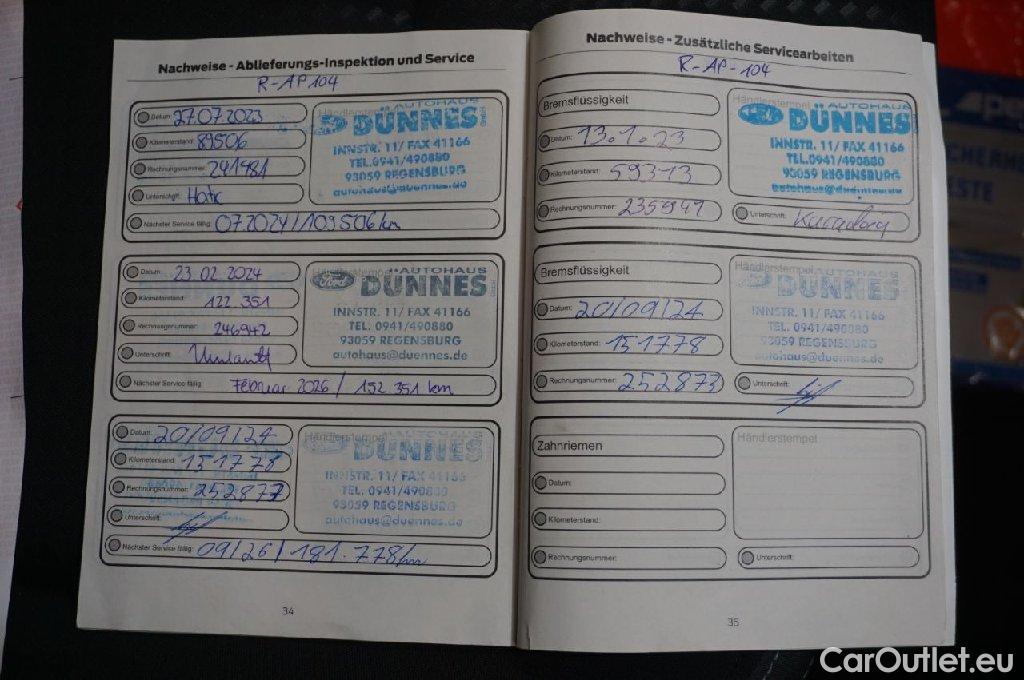 Nachweise - Ablieferungs-Inspektion und Service
R-AP 104
Datum: 27.07.2023
Kilometerstand: 89506
Rechnungsnummer: 241981
Unterschrift:
Nächster Service fällig: 07.2024 / 109506 km
Händlerstempel
AUTOHAUS
DÜNNES GmbH
INNSTR. 11/ FAX 41166
TEL.0941/490880
93059 REGENSBURG
autohaus@duennes.de
Datum: 23.02.2024
Kilometerstand: 122.351
Rechnungsnummer: 246942
Unterschrift:
Nächster Service fällig: Februar 2026 / 152 351 km
Händlerstempel
Ford AUTOHAUS
DÜNNES GmbH
INNSTR. 11/ FAX 41166
TEL. 0941/490880
93059 REGENSBURG
autohaus@duennes.de
Datum: 20/09/24
Kilometerstand: 151778
Rechnungsnummer: 252877
Unterschrift:
Nächster Service fällig: 09/26 / 181.778/km
Händlerstempel
AUTOHAUS
DÜNNES
INNSTR. 11/ FAX 41166
TEL. 0941/490880
93059 REGENSBURG
autohaus@duennes.de
34
Nachweise - Zusätzliche Servicearbeiten
R-AP-104
Bremsflüssigkeit
Datum: 13.1.23
Kilometerstand: 59313
Rechnungsnummer: 235941
Unterschrift:
Händlerstempel
Ford AUTOHAUS
DÜNNES GmbH
INNSTR. 11/ FAX 41166
TEL.0941/490880
93059 REGENSBURG
autohaus@duennes.de
Bremsflüssigkeit
Datum: 20/09/24
Kilometerstand: 151778
Rechnungsnummer: 252873
Unterschrift:
Händlerstempel
AUTOHAUS
DÜNNES
INNSTR. 11/ FAX 41166
TEL. 0941/490880
93059 REGENSBURG
autohaus@duennes.de
Zahnriemen
Datum:
Kilometerstand:
Rechnungsnummer:
Unterschrift:
Händlerstempel
35
CarOutlet.eu